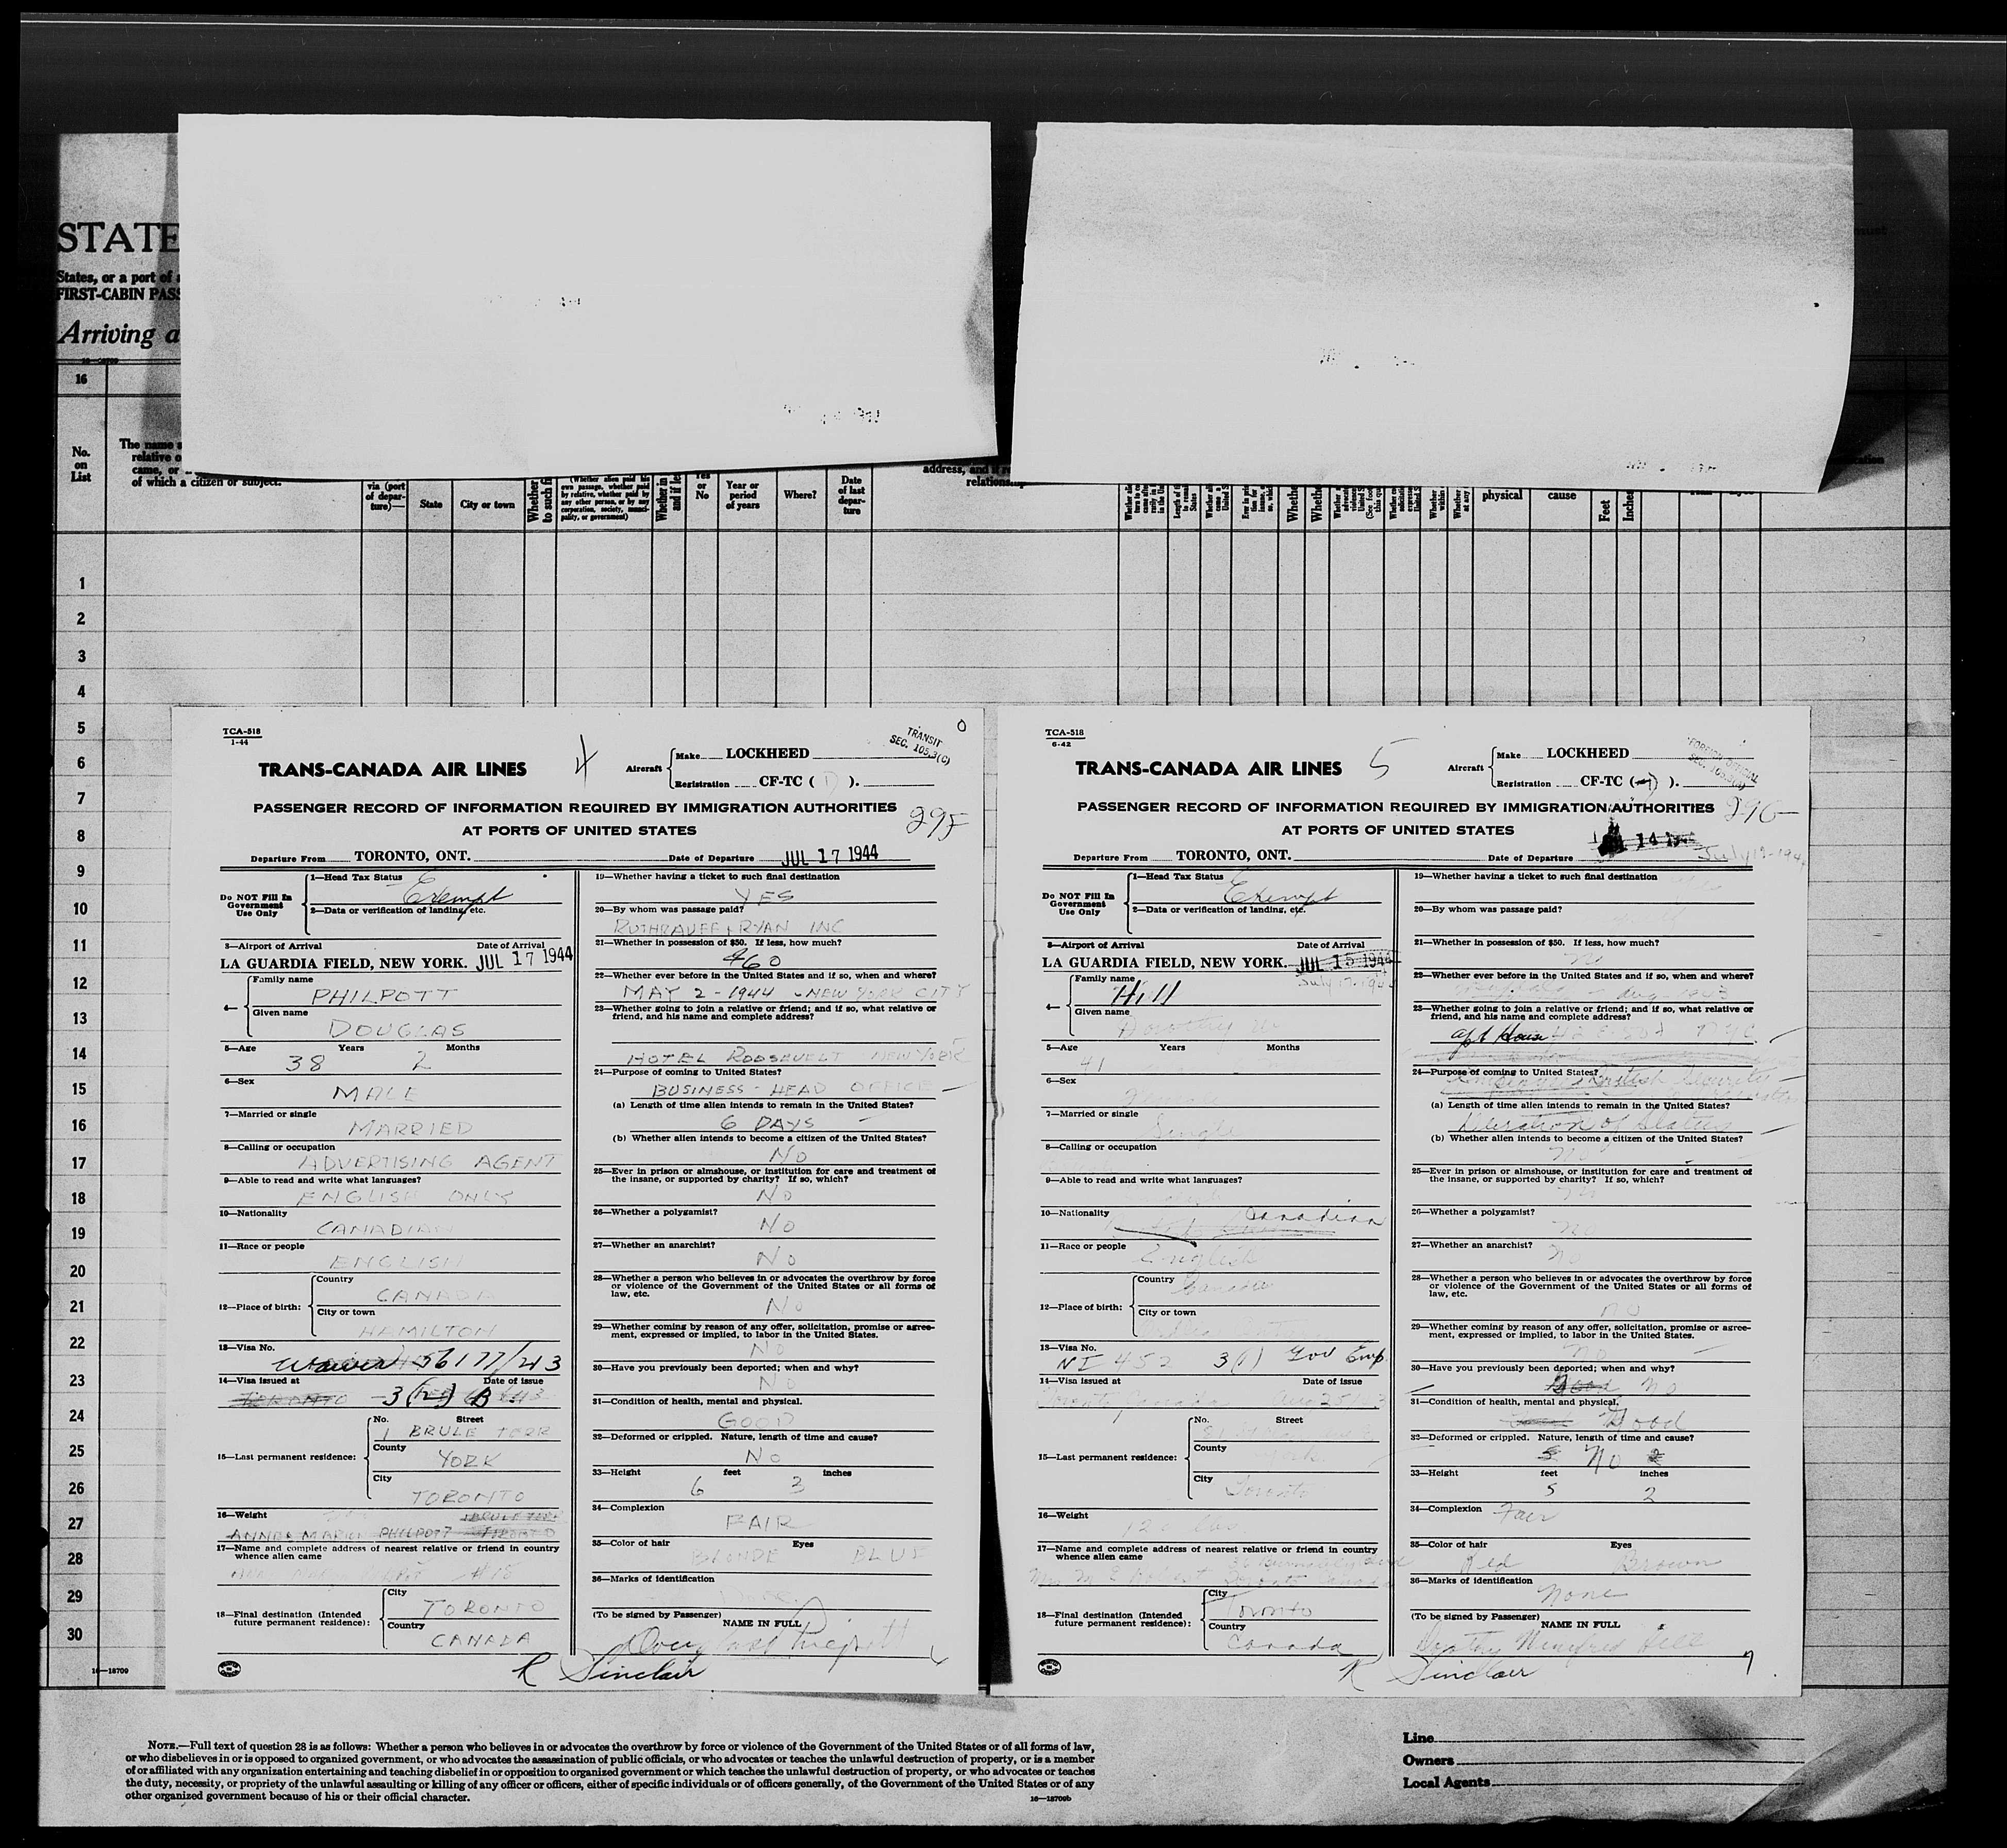 STATE
States, or a port of
FIRST-CABIN PASS
Arriving a
16—18709
16
No.
on
List
The name
relative o
came, or
of which a citizen or subject.
via (port
of depar-
ture)—
State
City or town
Whether
to such fi
(Whether alien paid his
own passage, whether paid
by relative, whether paid by
any other person, or by any
corporation, society, munici-
pality, or government)
Whether in
and if le
Yes
or
No
Year or
period
of years
Where?
Date
of last
depar-
ture
address, and if re
relationship
physical
cause
Feet
Inches
1
2
3
4
5
6
7
8
9
10
11
12
13
14
15
16
17
18
19
20
21
22
23
24
25
26
27
28
29
30
16—18709
TCA-518
1-44
4
TRANSIT
SEC. 105.3(C)
0
TRANS-CANADA AIR LINES
Aircraft
Make LOCKHEED
Registration CF-TC ( ).
PASSENGER RECORD OF INFORMATION REQUIRED BY IMMIGRATION AUTHORITIES
AT PORTS OF UNITED STATES
Departure From TORONTO, ONT.
Date of Departure JUL 17 1944
Do NOT Fill In
Government
Use Only
1—Head Tax Status
Exempt
2—Data or verification of landing, etc.
3—Airport of Arrival
Date of Arrival
LA GUARDIA FIELD, NEW YORK. JUL 17 1944
4—
Family name
PHILPOTT
Given name
DOUGLAS
5—Age Years Months
38 2
6—Sex
MALE
7—Married or single
MARRIED
8—Calling or occupation
ADVERTISING AGENT
9—Able to read and write what languages?
ENGLISH ONLY
10—Nationality
CANADIAN
11—Race or people
ENGLISH
12—Place of birth:
Country
CANADA
City or town
HAMILTON
13—Visa No.
Waiver 56177/43
14—Visa issued at Date of issue
TORONTO 3(2) B
15—Last permanent residence:
No. Street
1 BRULE TERR
County
YORK
City
TORONTO
16—Weight
BRULE TERR
PHILPOTT TORONTO
17—Name and complete address of nearest relative or friend in country
whence alien came
18—Final destination (Intended
future permanent residence):
City
TORONTO
Country
CANADA
19—Whether having a ticket to such final destination
YES
20—By whom was passage paid?
RUTHRAUFF & RYAN INC
21—Whether in possession of $50. If less, how much?
460
22—Whether ever before in the United States and if so, when and where?
MAY 2 - 1944 - NEW YORK CITY
23—Whether going to join a relative or friend; and if so, what relative or
friend, and his name and complete address?
HOTEL ROOSEVELT NEW YORK
24—Purpose of coming to United States?
BUSINESS - HEAD OFFICE
(a) Length of time alien intends to remain in the United States?
6 DAYS
(b) Whether alien intends to become a citizen of the United States?
NO
25—Ever in prison or almshouse, or institution for care and treatment of
the insane, or supported by charity? If so, which?
NO
26—Whether a polygamist?
NO
27—Whether an anarchist?
NO
28—Whether a person who believes in or advocates the overthrow by force
or violence of the Government of the United States or all forms of
law, etc.
NO
29—Whether coming by reason of any offer, solicitation, promise or agree-
ment, expressed or implied, to labor in the United States.
NO
30—Have you previously been deported; when and why?
NO
31—Condition of health, mental and physical.
GOOD
32—Deformed or crippled. Nature, length of time and cause?
NO
33—Height feet inches
6 3
34—Complexion
FAIR
35—Color of hair Eyes
BLONDE BLUE
36—Marks of identification
(To be signed by Passenger)
NAME IN FULL
Douglass Philpott
R Sinclair
TCA-518
6-42
5
FOREIGN OFFICIAL
TRANS-CANADA AIR LINES
Aircraft
Make LOCKHEED
Registration CF-TC ( ).
PASSENGER RECORD OF INFORMATION REQUIRED BY IMMIGRATION AUTHORITIES
AT PORTS OF UNITED STATES
Departure From TORONTO, ONT.
Date of Departure 14 1944
Do NOT Fill In
Government
Use Only
1—Head Tax Status
Exempt
2—Data or verification of landing, etc.
3—Airport of Arrival
Date of Arrival
LA GUARDIA FIELD, NEW YORK. JUL 15 1944
4—
Family name
Hill
Given name
5—Age Years Months
41
6—Sex
Female
7—Married or single
Single
8—Calling or occupation
9—Able to read and write what languages?
10—Nationality
Canadian
11—Race or people
English
12—Place of birth:
Country
Canada
City or town
13—Visa No.
NI 452 3(1) Gov Emp.
14—Visa issued at Date of issue
15—Last permanent residence:
No. Street
County
York
City
Toronto
16—Weight
120 lbs
17—Name and complete address of nearest relative or friend in country
whence alien came
18—Final destination (Intended
future permanent residence):
City
Toronto
Country
Canada
19—Whether having a ticket to such final destination
20—By whom was passage paid?
21—Whether in possession of $50. If less, how much?
22—Whether ever before in the United States and if so, when and where?
Aug 1943
23—Whether going to join a relative or friend; and if so, what relative or
friend, and his name and complete address?
apt House
24—Purpose of coming to United States?
British Security
(a) Length of time alien intends to remain in the United States?
Duration of Status
(b) Whether alien intends to become a citizen of the United States?
no
25—Ever in prison or almshouse, or institution for care and treatment of
the insane, or supported by charity? If so, which?
no
26—Whether a polygamist?
no
27—Whether an anarchist?
no
28—Whether a person who believes in or advocates the overthrow by force
or violence of the Government of the United States or all forms of
law, etc.
no
29—Whether coming by reason of any offer, solicitation, promise or agree-
ment, expressed or implied, to labor in the United States.
no
30—Have you previously been deported; when and why?
Good no
31—Condition of health, mental and physical.
Good
32—Deformed or crippled. Nature, length of time and cause?
No
33—Height feet inches
5 2
34—Complexion
Fair
35—Color of hair Eyes
Red Brown
36—Marks of identification
none
(To be signed by Passenger)
NAME IN FULL
Dorothy Winifred Hill
R Sinclair
NOTE.—Full text of question 28 is as follows: Whether a person who believes in or advocates the overthrow by force or violence of the Government of the United States or of all forms of law,
or who disbelieves in or is opposed to organized government, or who advocates the assassination of public officials, or who advocates or teaches the unlawful destruction of property, or is a member
of or affiliated with any organization entertaining and teaching disbelief in or opposition to organized government or which teaches the unlawful destruction of property, or who advocates or teaches
the duty, necessity, or propriety of the unlawful assaulting or killing of any officer or officers, either of specific individuals or of officers generally, of the Government of the United States or of any
other organized government because of his or their official character.
16—18709b
Line
Owners
Local Agents